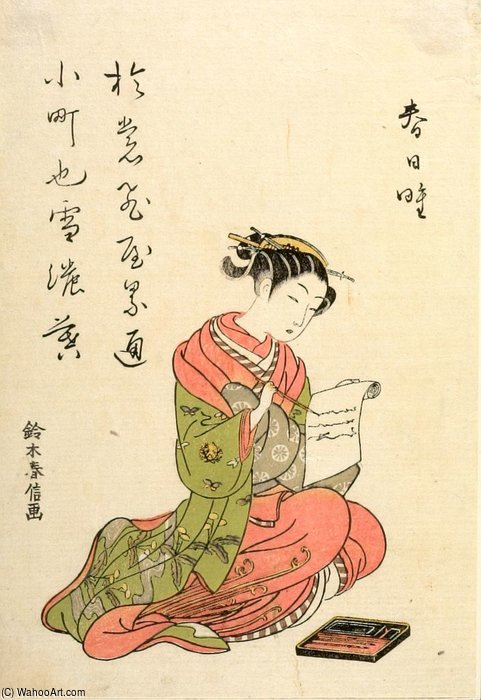 春日野
於裳飛屋累通
小町也雪濃暮
鈴木春信画
(C) WahooArt.com